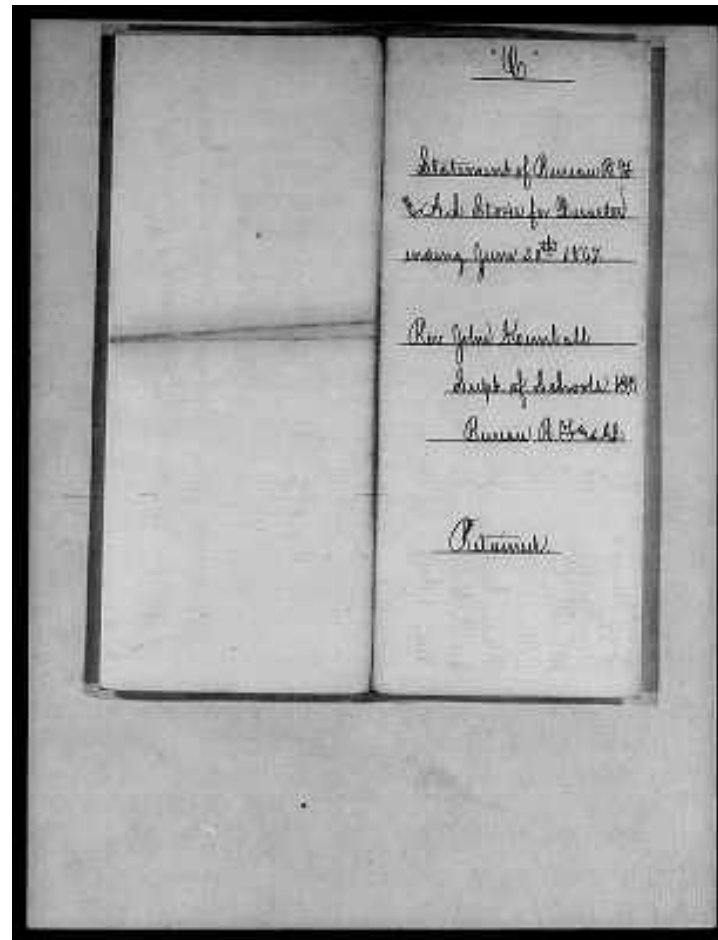 Statement of Bureau R. F.
& A. L. Stores for Quarter
ending June 30th 1867
Rev John Kimball
Supt. of Schools
Bureau R. F. & A. L.
Retained